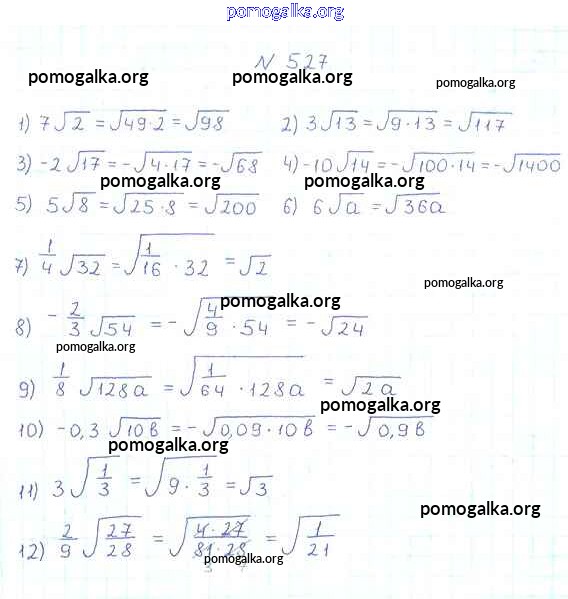 pomogalka.org
N 527
pomogalka.org pomogalka.org pomogalka.org
1) 7√2 = √49·2 = √98 2) 3√13 = √9·13 = √117
3) -2√17 = -√4·17 = -√68 4) -10√14 = -√100·14 = -√1400
pomogalka.org pomogalka.org
5) 5√8 = √25·8 = √200 6) 6√a = √36a
7) 1/4 √32 = √1/16 · 32 = √2
pomogalka.org
pomogalka.org
8) -2/3 √54 = -√4/9 · 54 = -√24
pomogalka.org
9) 1/8 √128a = √1/64 · 128a = √2a
pomogalka.org
10) -0,3 √10в = -√0,09·10в = -√0,9в
pomogalka.org
11) 3√1/3 = √9 · 1/3 = √3
pomogalka.org
12) 2/9 √27/28 = √4·27/81·28 = √1/21
pomogalka.org